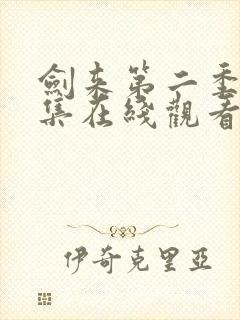 劍來第二季
集在綫觀看
伊奇克里亞